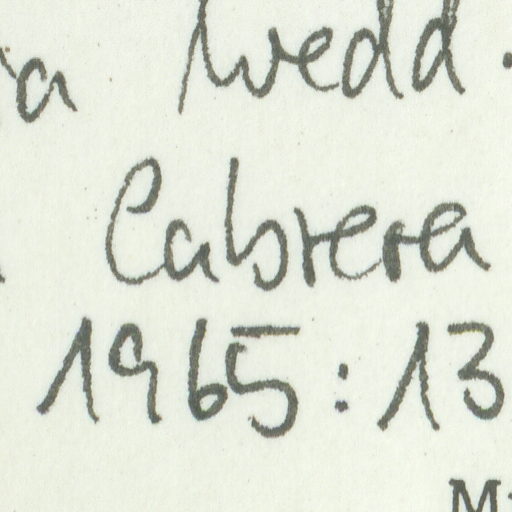 a Wedd.
Cabrera
1965:13
M